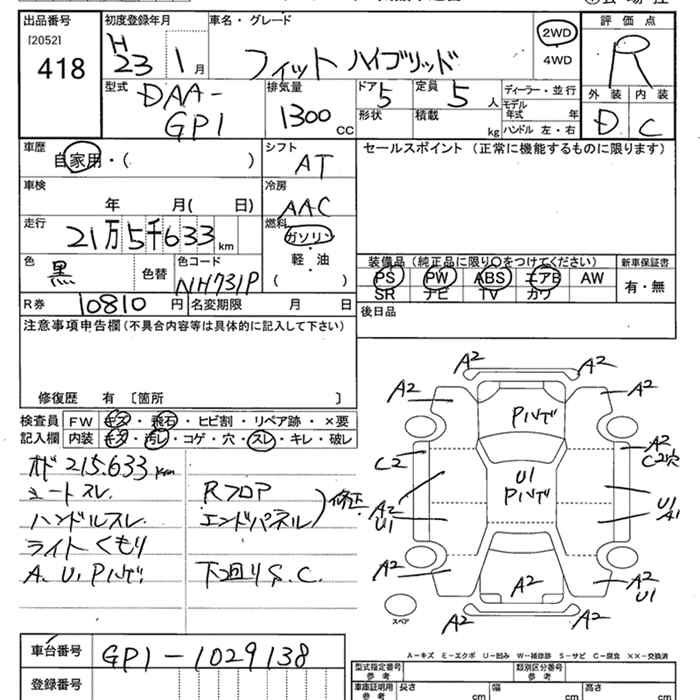 出品番号 初度登録年月 車名・グレード 評価点
[2052] H 23 1月 フィット ハイブリッド 2WD R
418 4WD
型式 DAA-GP1 排気量 1300 CC ドア 5 定員 5 人 ディーラー・並行 外装 内装
形状 積載 kg モデル年式 年 D C
ハンドル 左・右
車歴 自家用・( ) シフト AT セールスポイント (正常に機能するものに限ります)
車検 年 月( 日) 冷房 AAC
走行 21万5千633km 燃料 ガソリン・軽油・( )
色 黒 色替 色コード NH731P 装備品 (純正品に限り○をつけてください) 新車保証書
PS PW ABS エアB AW 有・無
SR ナビ TV カワ
R券 10810 円 名変期限 月 日 後日品
注意事項申告欄 (不具合内容等は具体的に記入して下さい)
修復歴 有 [箇所 ]
検査員 FW キズ・飛石・ヒビ割・リペア跡・×要
記入欄 内装 キズ・汚レ・コゲ・穴・スレ・キレ・破レ
オド 215.633km
シートスレ Rフロア
ハンドルスレ. エンドパネル )修正
ライトくもり
A. U. Pハゲ 下回りS.C.
A2 A2
A2 A2
Pハゲ
C2 A2
C2穴
U1
Pハゲ
A2 U1
U1 A1
A2 A2
A2 U1
スペア A2 A2
A-キズ E-エクボ U-凹み W-補修跡 S-サビ C-腐食 XX-交換済
車台番号 GP1-1029138
登録番号
型式指定番号 参考 類別区分番号 参考
車庫証明用 参考 長さ cm 幅 cm 高さ cm